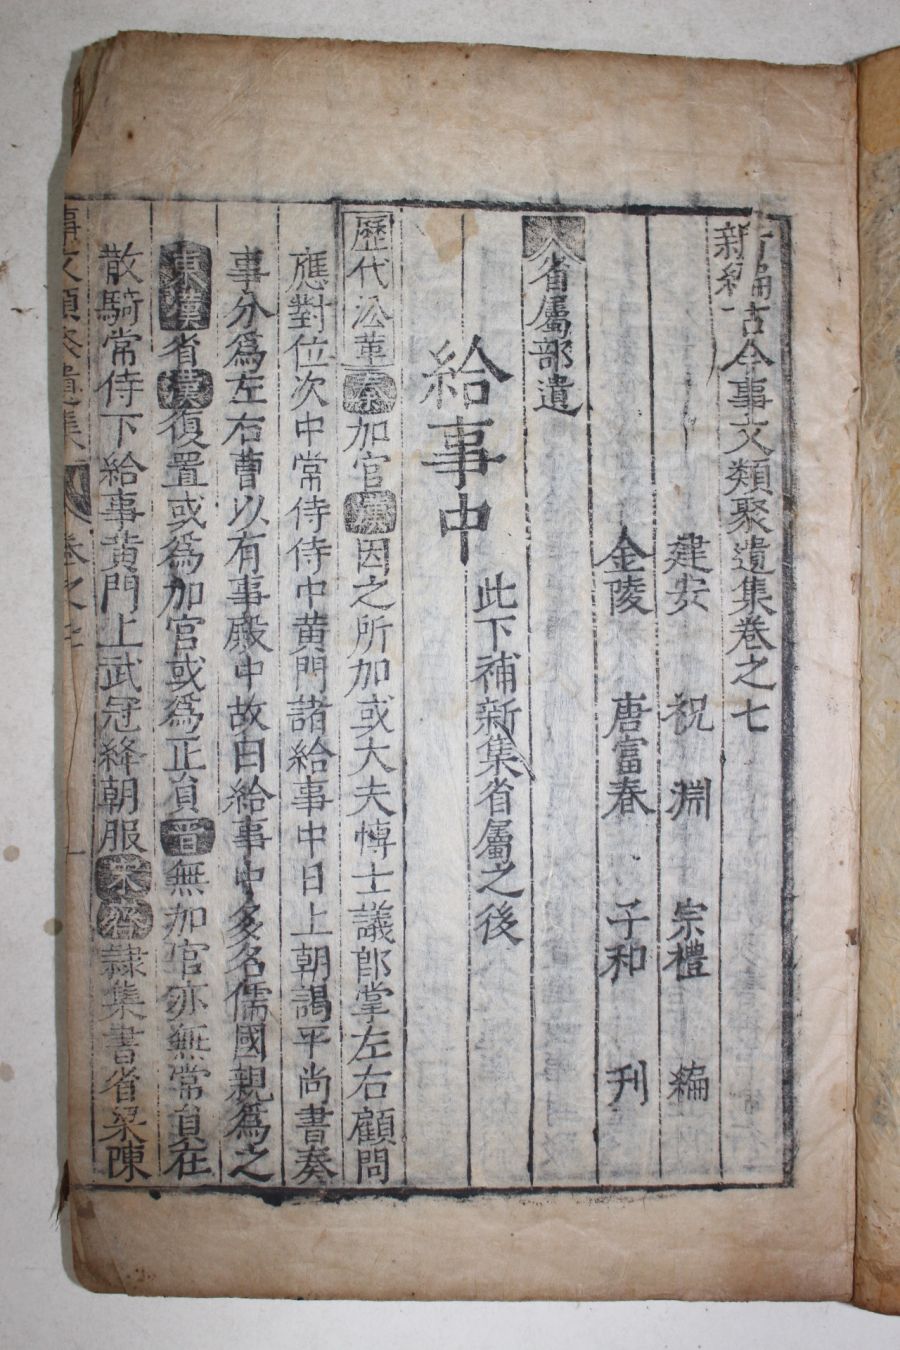 新編古今事文類聚遺集卷之七
建安 祝 淵 宗禮 編
金陵 唐富春 子和 刊
省屬部遺
給事中 此下補新集省屬之後
歷代沿革秦加官漢因之所加或大夫博士議郎掌左右顧問
應對位次中常侍侍中黄門諸給事中日上朝謁平尚書奏
事分爲左右曹以有事殿中故曰給事中多名儒國親爲之
東漢省漢復置或爲加官或爲正員晋無加官亦無常員在
散騎常侍下給事黄門上武冠絳朝服宋齊隷集書省梁陳
事文類聚遺集 卷之七 一